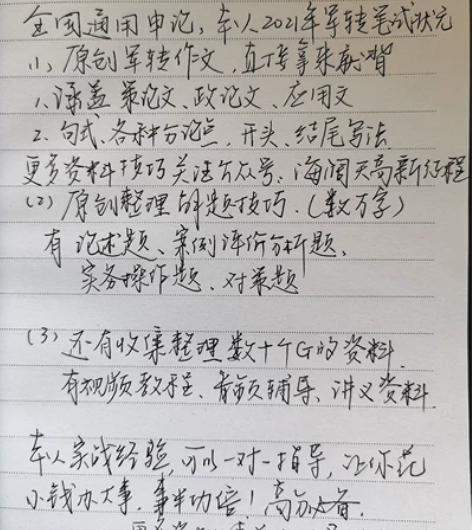 全国通用申论，本人2021年军转笔试状元
(1)、原创军转作文，直接拿来就背
1、涵盖策论文、政论文、应用文
2. 句式、各种分论点，开头、结尾写法
更多资料技巧关注公众号、海阔天高新征程
(2) 原创整理的题技巧．(数万字)
有论述题、案例评价分析题、
实务操作题、对策题
(3) 还有收集整理数十个G的资料
有视频教程、音频辅导、讲义资料
本人实战经验，可以一对一指导，让你花
小钱办大事，事半功倍！高分必备．